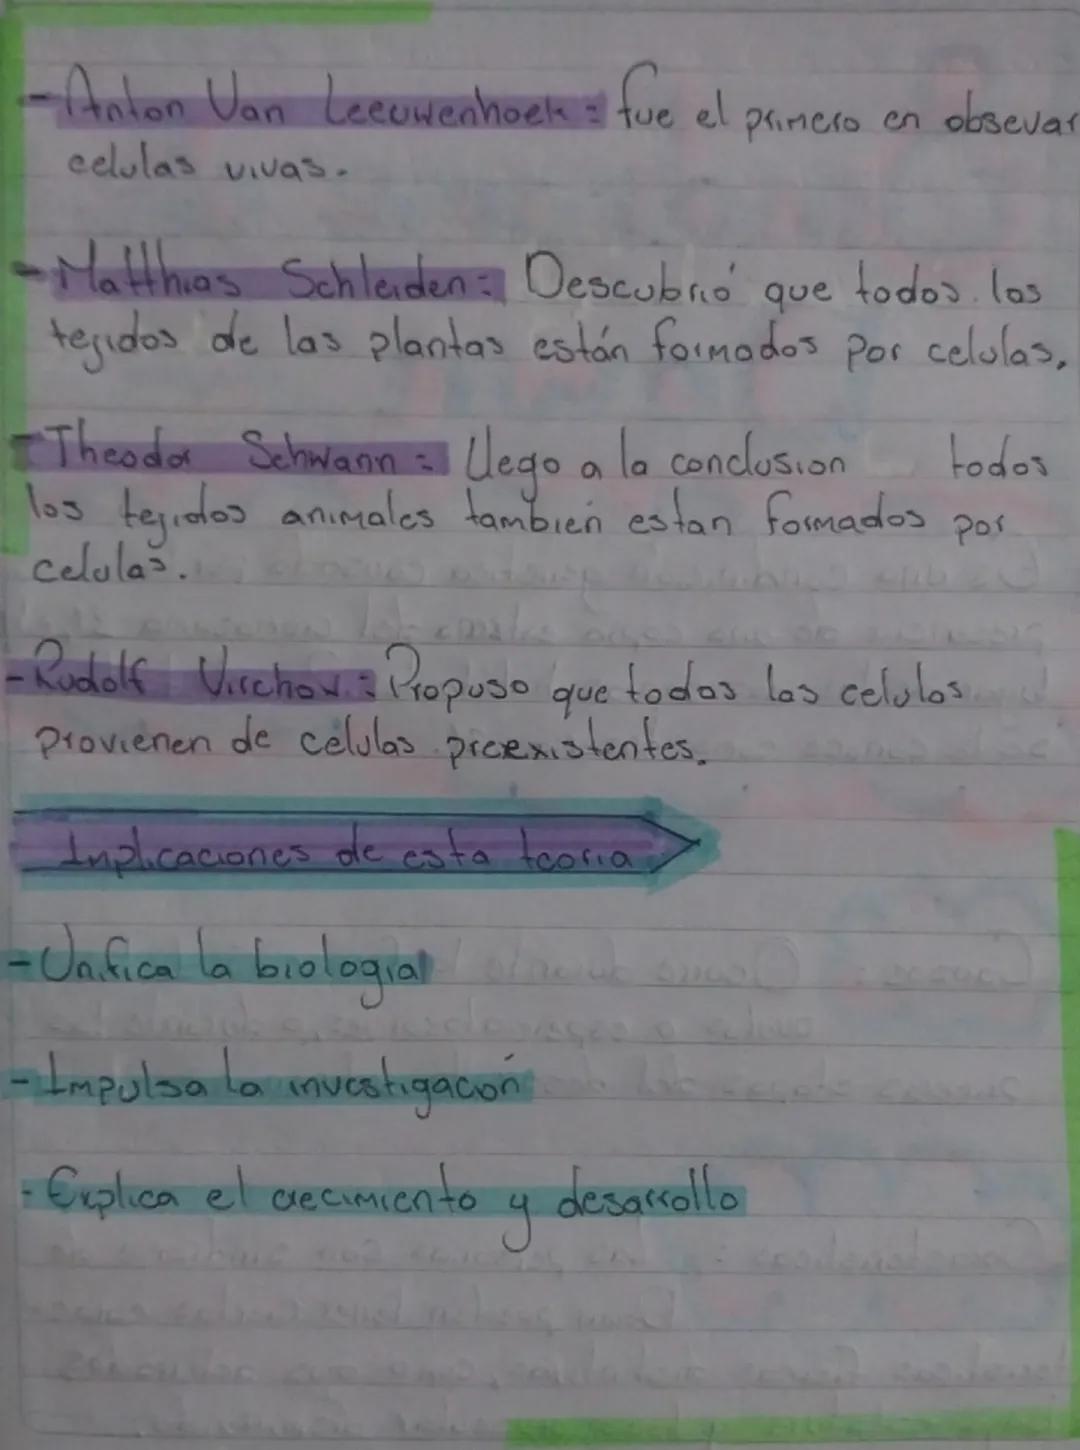 - Anton Van Leeuwenhoek = fue el primero en obsevar
celulas vivas.
- Matthias Schleiden = Descubrió que todos los
tejidos de las plantas están formados por celulas.
- Theodor Schwann = Llego a la conclusion todos
los tejidos animales tambien estan formados por
celulas.
- Rudolf Virchow = Propuso que todas las celulas
provienen de células preexistentes.
Implicaciones de esta teoria
- Unifica la biologia
- Impulsa la investigacón
- Explica el crecimiento y desarrollo